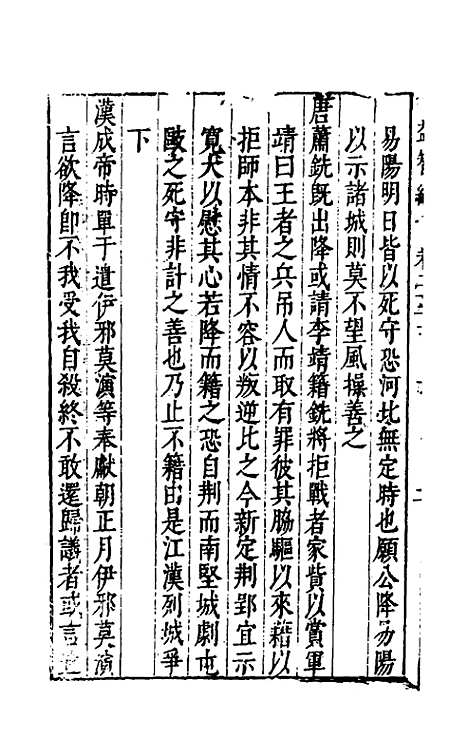 易陽明日皆以死守恐河北無定時也願公降易陽
以示諸城則莫不望風操善之
唐蕭銑旣出降或請李靖籍銑將拒戰者家貲以賞軍
靖曰王者之兵吊人而取有罪彼其脇驅以來藉以
拒師本非其情不容以叛逆比之今新定荆郢宜示
寛大以慰其心若降而籍之恐自荆而南堅城劇屯
敺之死守非計之善也乃止不籍由是江漢列城爭
下
漢成帝時單于遣伊邪莫演等奉獻朝正月伊邪莫演
言欲降卽不我受我自殺終不敢還歸議者或言